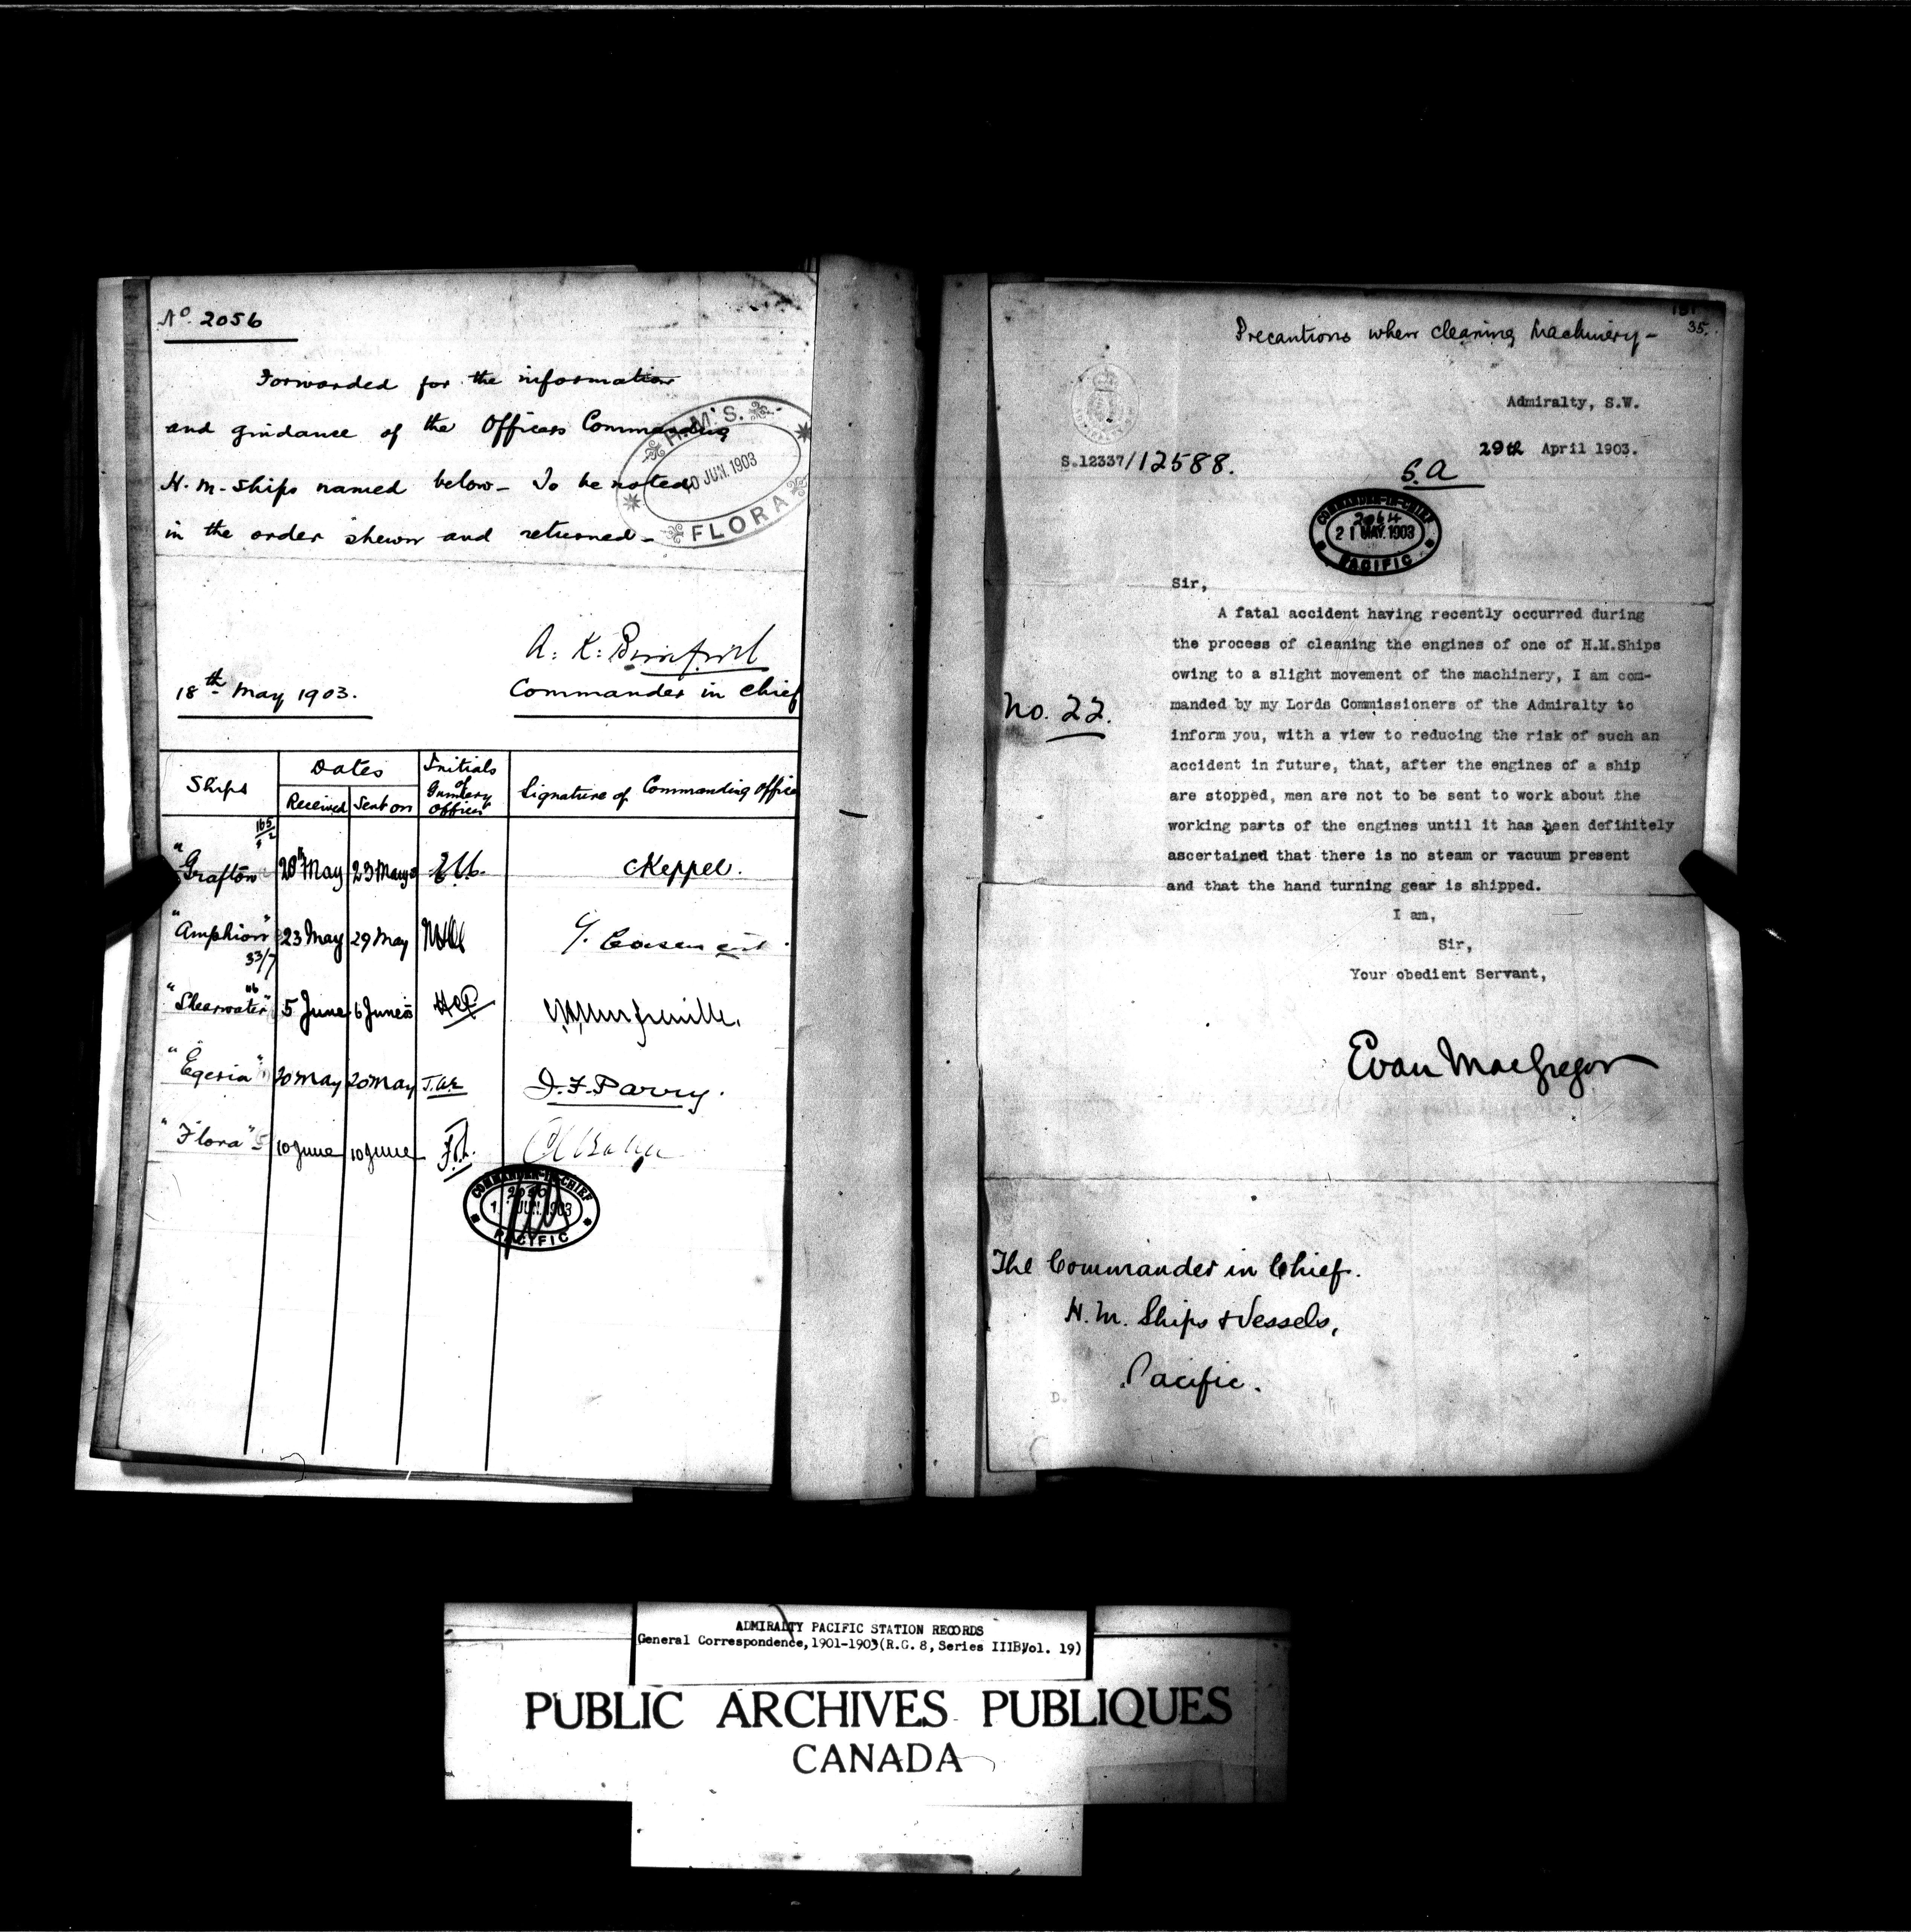 No. 2056
Forwarded for the information
and guidance of the Officers Commanding
H.M. Ships named below - To be noted
in the order shewn and returned -
H.M.S.
10 JUN. 1903
FLORA
A. K. Bickford
18th May 1903.
Commander in Chief
Ships
Dates
Received
Sent on
Initials of Gunnery Officer
Signature of Commanding Office
165/2
"Grafton" 20th May 23 May CKeppel.
"Amphion" 23 May 29 May
33/7
"Shearwater" 5 June 6 June
"Egeria" 20 May 20 May J.F. Parry.
"Flora" 10 June 10 June
COMMANDER-IN-CHIEF
2056
JUN. 1903
PACIFIC
35.
Precautions when cleaning Machinery -
Admiralty, S.W.
29th April 1903.
S.12337/12588.
S.A
COMMANDER-IN-CHIEF
2064
21 MAY. 1903
PACIFIC
Sir,
A fatal accident having recently occurred during
the process of cleaning the engines of one of H.M.Ships
owing to a slight movement of the machinery, I am com-
manded by my Lords Commissioners of the Admiralty to
No. 22.
inform you, with a view to reducing the risk of such an
accident in future, that, after the engines of a ship
are stopped, men are not to be sent to work about the
working parts of the engines until it has been definitely
ascertained that there is no steam or vacuum present
and that the hand turning gear is shipped.
I am,
Sir,
Your obedient Servant,
Evan MacGregor
The Commander in Chief.
H.M. Ships & Vessels,
Pacific.
ADMIRALTY PACIFIC STATION RECORDS
General Correspondence, 1901-1903 (R.G. 8, Series IIIB, Vol. 19)
PUBLIC ARCHIVES PUBLIQUES
CANADA